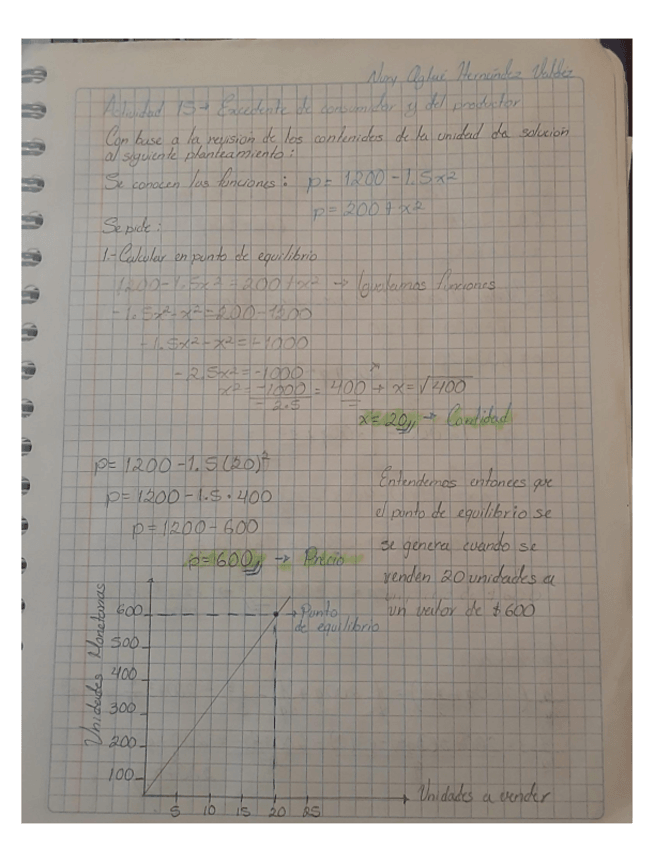 Nury Aglui Hernández Valdez
Actividad 15 → Excedente de consumidor y del productor
Con base a la revisión de los contenidos de la unidad da solución
al siguiente planteamiento:
Se conocen las funciones: p= 1200 - 1.5x²
p= 200 + x²
Se pide:
1.- Calcular en punto de equilibrio
1200 - 1.5x² = 200 + x² → Igualamos funciones
- 1.5x² - x² = 200 - 1200
- 1.5x² - x² = -1000
- 2.5x² = -1000
x² = -1000 / -2.5 = 400 → x = √400
x = 20 → Cantidad
p= 1200 - 1.5 (20)²
p= 1200 - 1.5 · 400
p= 1200 - 600
p= 600 → Precio
Entendemos entonces que
el punto de equilibrio se
se genera cuando se
venden 20 unidades a
un valor de $600
Unidades Monetarias
600
500
400
300
200
100
→ Punto
de equilibrio
5 10 15 20 25
Unidades a vender